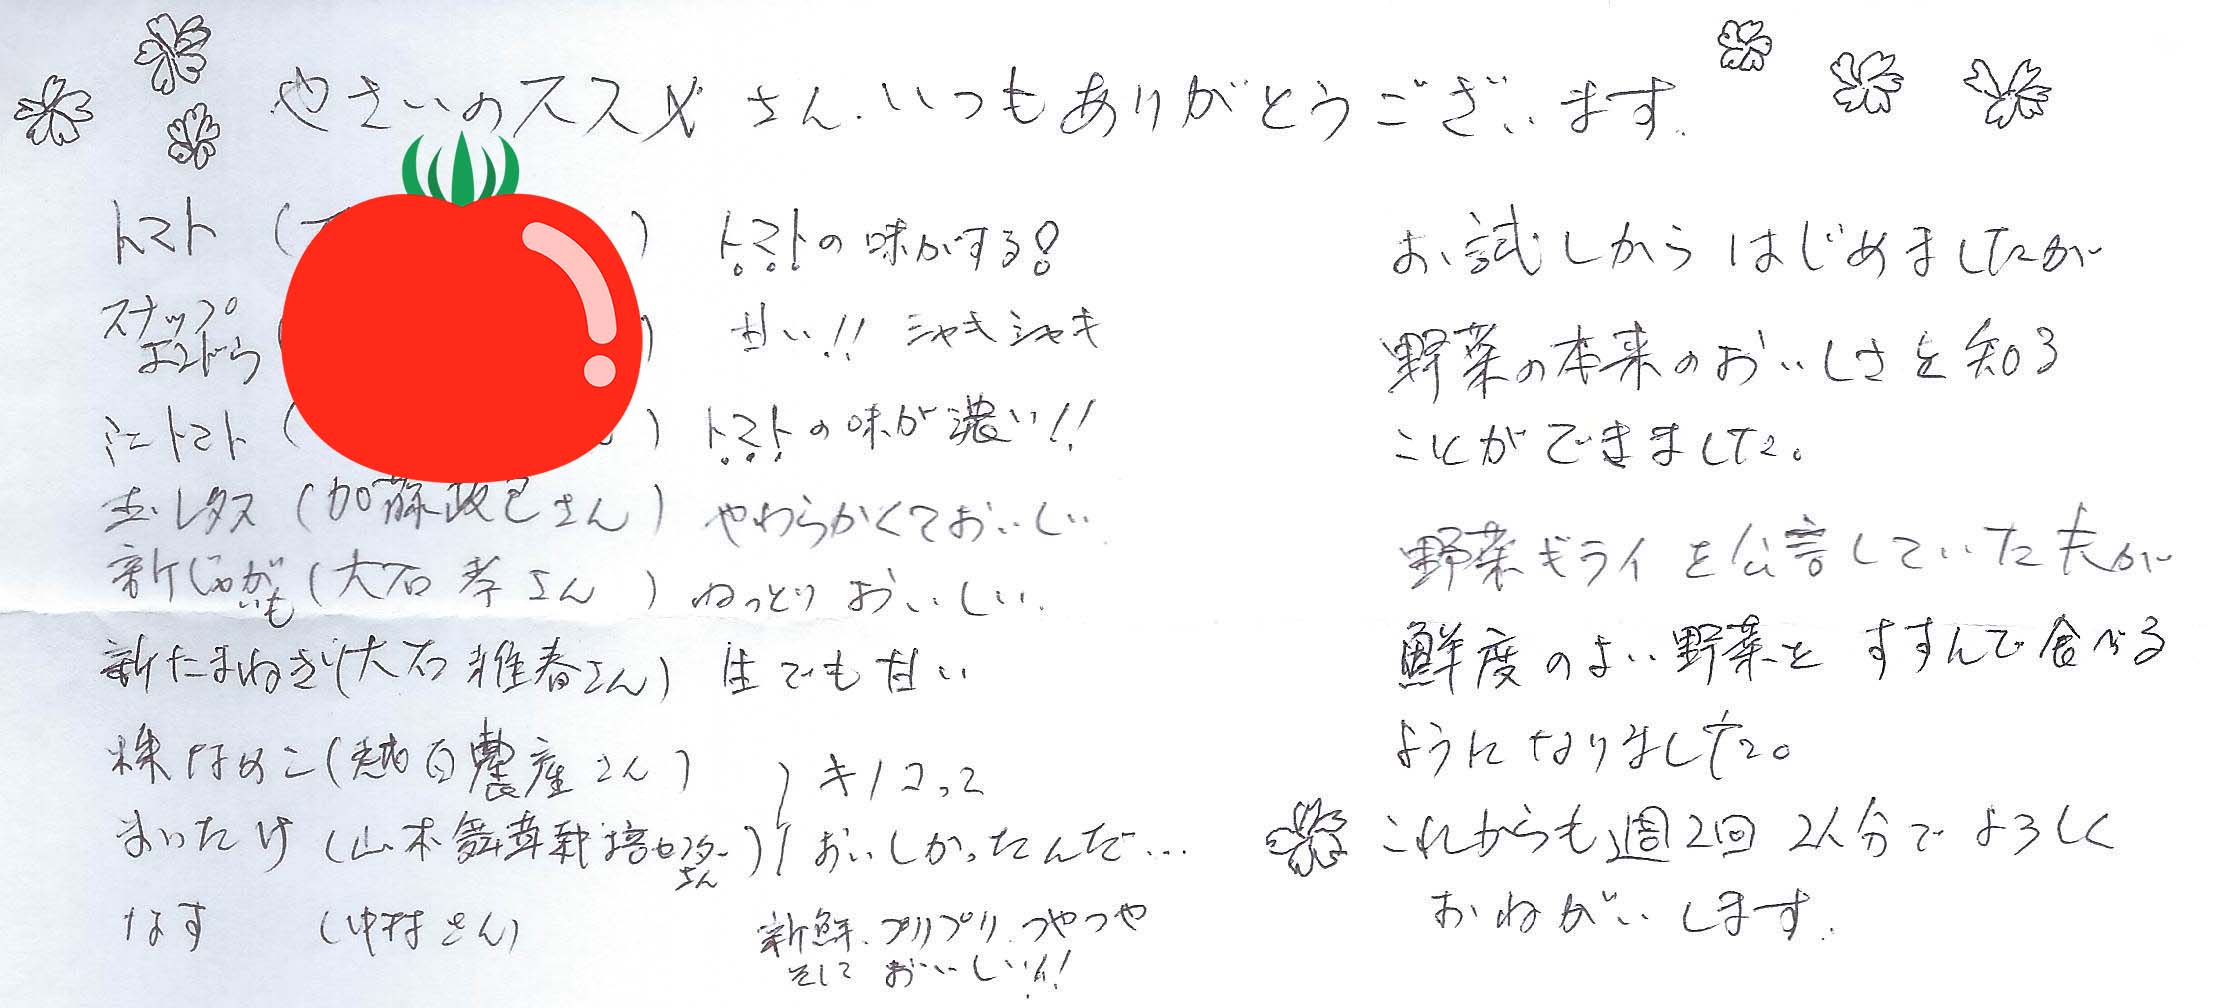 やさいのススメさん、いつもありがとうございます。
トマト ( ) トマトの味がする!
スナップ
エンドウ ( ) 甘い!! シャキシャキ
ミニトマト ( ) トマトの味が濃い!!
玉レタス (加藤政已さん) やわらかくておいしい
新じゃがいも (大石孝さん) ねっとりおいしい。
新たまねぎ (大石雅春さん) 生でも甘い
株なめこ (越百農産さん) キノコって
まいたけ (山本舞茸栽培センターさん) おいしかったんだ…
なす (中村さん) 新鮮、プリプリ、つやつや
そして おいしい!!
お試しからはじめましたが
野菜の本来のおいしさを知る
ことができました。
野菜ギライを公言していた夫が
鮮度のよい野菜をすすんで食べる
ようになりました。
これからも週2回2人分でよろしく
おねがいします。